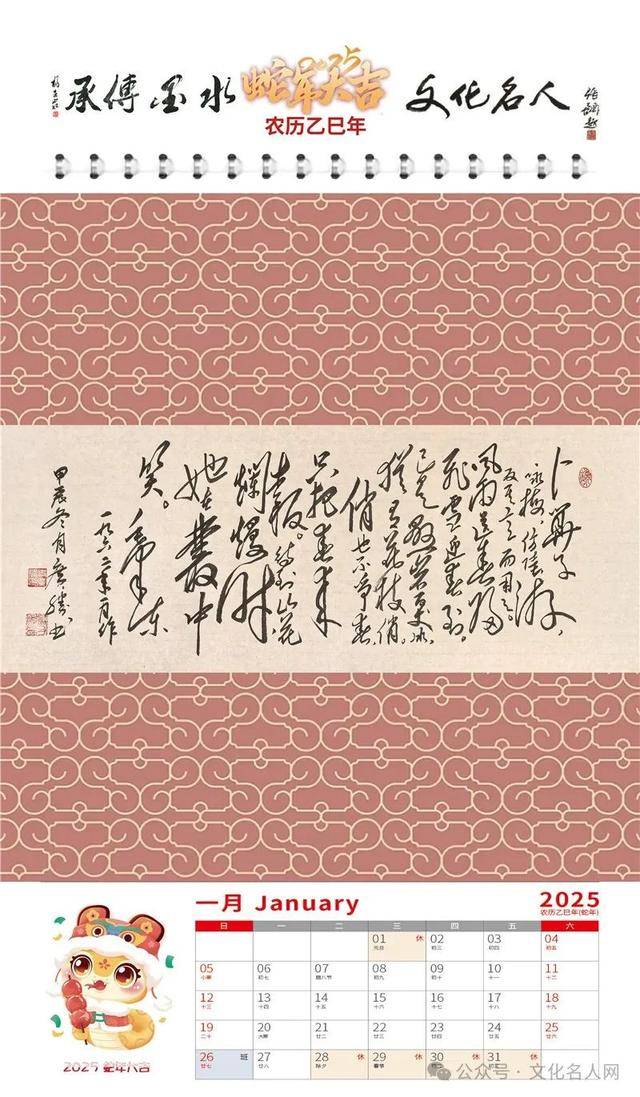 水墨傳承
2025
蛇年大吉
农历乙巳年
文化名人
卜算子
咏梅
反其意而用之。
風雨送春歸
飛雪迎春到
已是懸崖百丈冰
猶有花枝俏。
俏也不争春
只把春来
報。待到山花
爛熳時
她在叢中
笑。毛澤東
甲辰冬月
一月 January
2025
农历乙巳年(蛇年)
日 一 二 三 四 五 六
01 休 02 03 04
元旦 初三 初四 初五
05 06 07 08 09 10 11
小寒 初七 腊八节 初九 初十 十一 十二
12 13 14 15 16 17 18
十三 十四 十五 十六 十七 十八 十九
19 20 21 22 23 24 25
二十 大寒 廿二 廿三 廿四 廿五 廿六
26 班 27 28 休 29 休 30 休 31 休
廿七 廿八 除夕 春节
2025 蛇年大吉
公众号·文化名人网